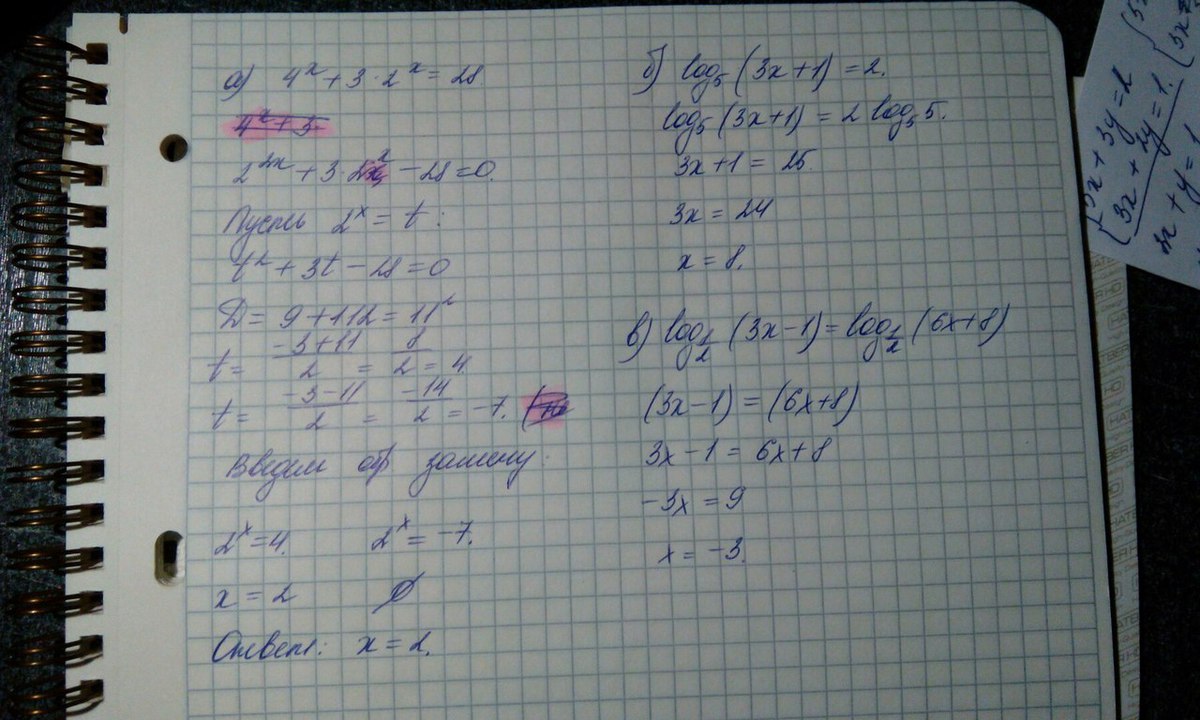 а) 4^x + 3 · 2^x = 28.
4^x + 3·
2^{2x} + 3 · 2^x - 28 = 0.
Пусть 2^x = t:
t² + 3t - 28 = 0
D = 9 + 112 = 11²
t = \frac{-3+11}{2} = \frac{8}{2} = 4.
t = \frac{-3-11}{2} = \frac{-14}{2} = -7.
Введем обр замену.
2^x = 4. 2^x = -7.
x = 2 ∅
Ответ: x = 2.
б) log_5 (3x+1) = 2.
log_5 (3x+1) = 2 log_5 5.
3x+1 = 25.
3x = 24
x = 8.
в) log_{\frac{1}{2}} (3x-1) = log_{\frac{1}{2}} (6x+8)
(3x-1) = (6x+8)
3x-1 = 6x+8
-3x = 9
x = -3.
3x + 3y = 2
3x + 2y = 1.